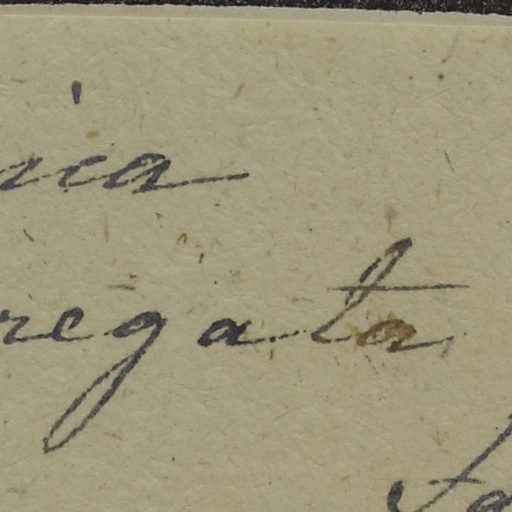 ica
regata